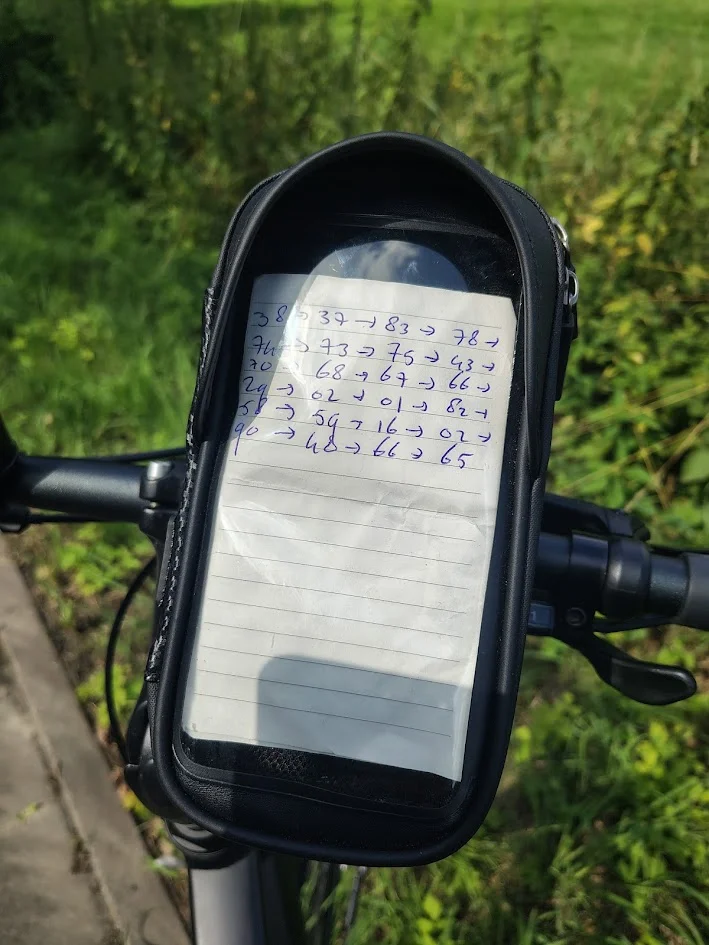 38 → 37 → 83 → 78 →
74 → 73 → 75 → 43 →
70 → 68 → 67 → 66 →
29 → 02 → 01 → 82 →
58 → 59 → 16 → 02 →
90 → 48 → 66 → 65